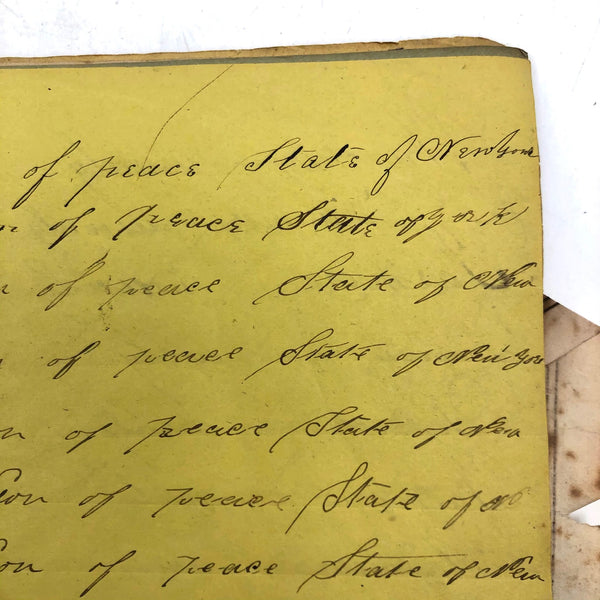 of peace State of New York
n of peace State of York
n of peace State of New
n of peace State of New Yor
n of peace State of New
ion of peace State of
ion of peace State of New